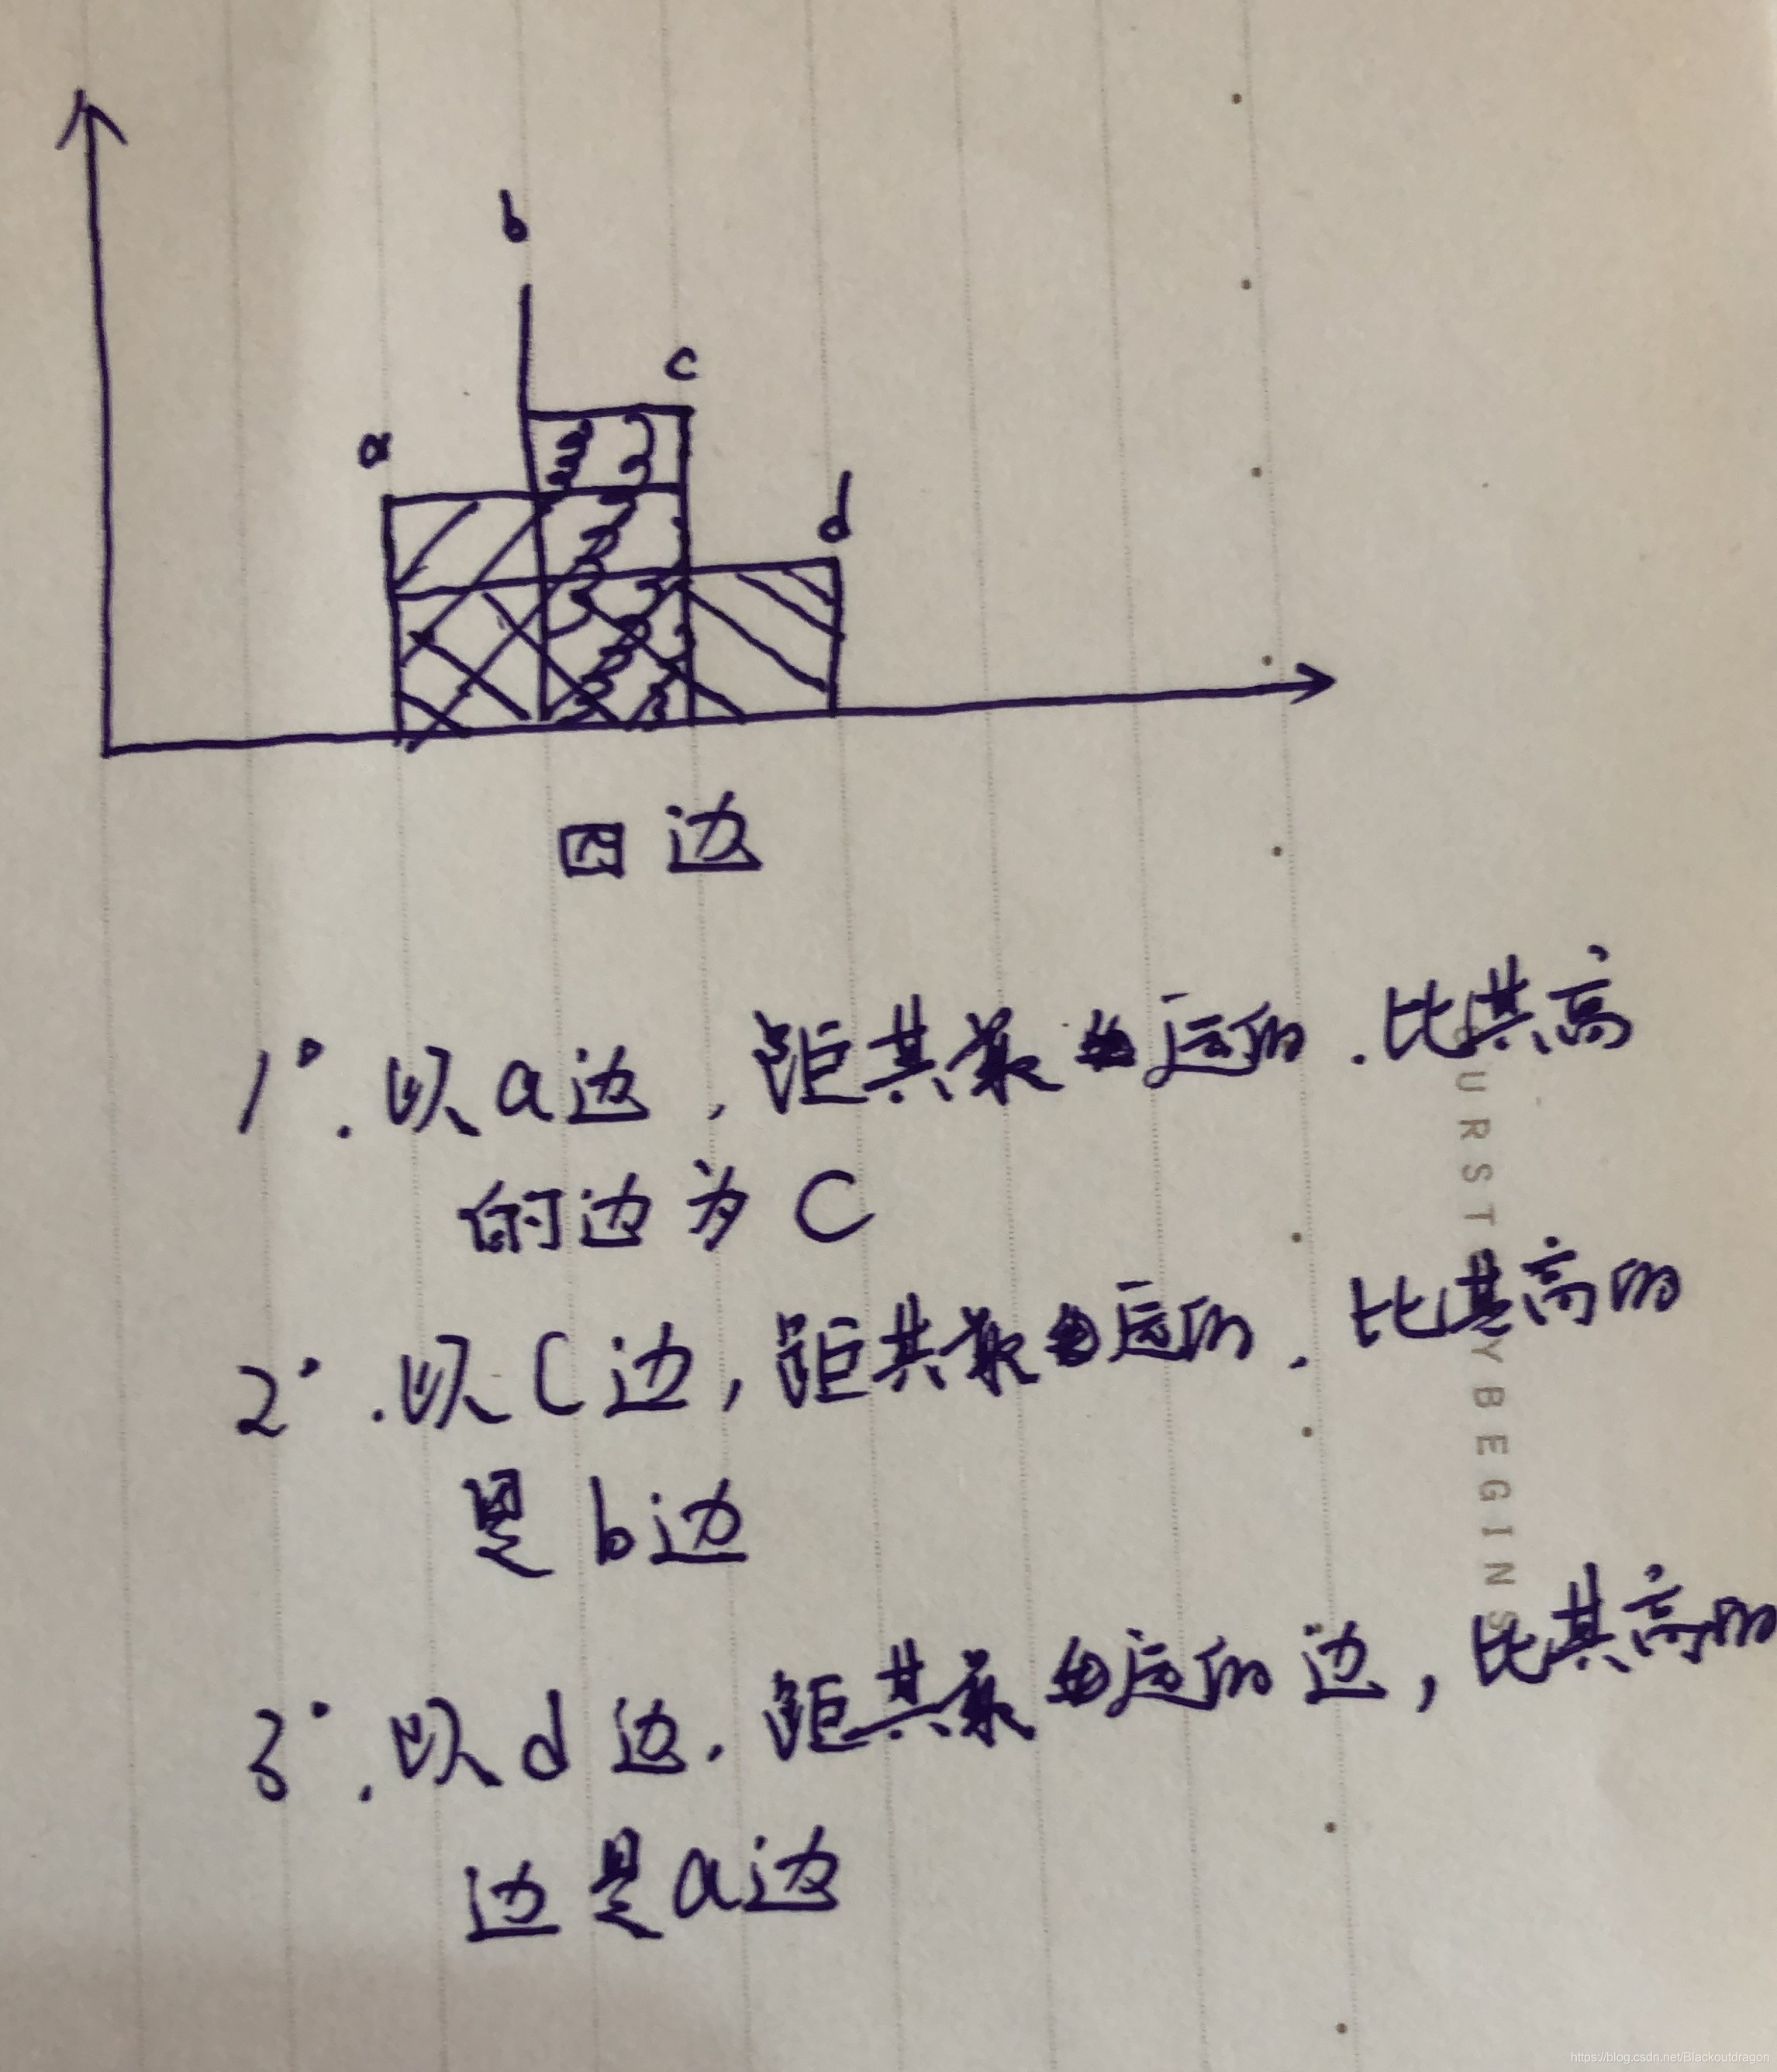 b
c
a
d
四边
1°. 以a边，距其最远的．比其高
的边为C
2°. 以C边，距其最远的．比其高的
是b边
3°. 以d边．距其最远的边，比其高的
边是a边
URST
YBEGINS
https://blog.csdn.net/Blackoutdragon